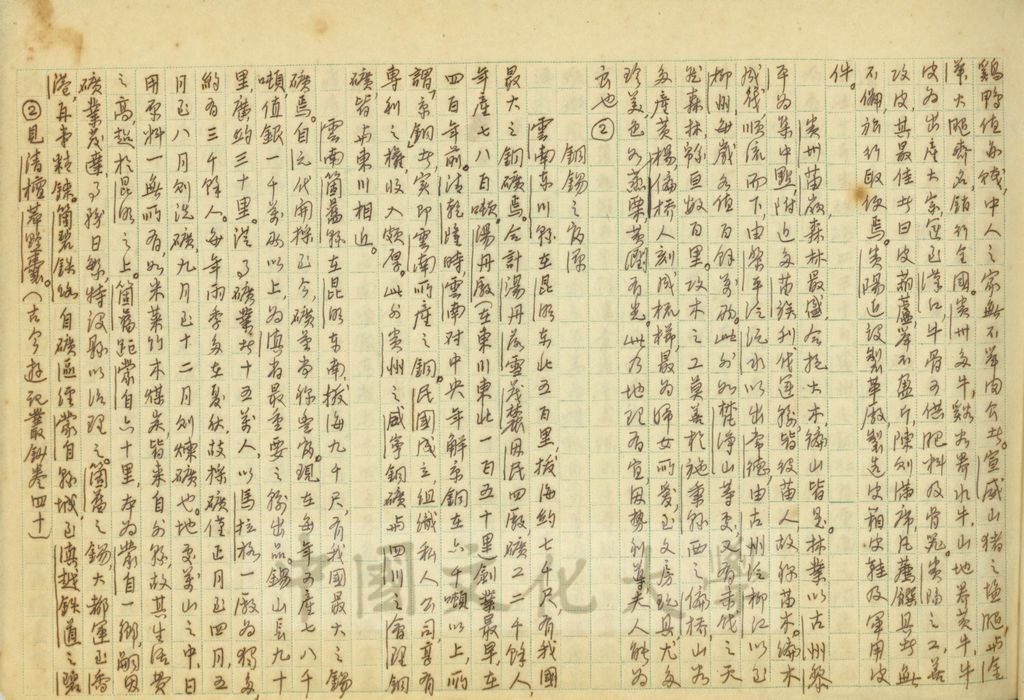 鷄鴨值每賤，中人之家無不羊肉公𠀋。宣威山猪之塩腿，与金
華大腿齊名，銷行全國。貴州多牛，谿谷界水牛，山地界黃牛，牛
皮為出產大宗，運至漢口，牛骨可供肥料及骨瓷。貴陽之工善
攻皮，其最佳者曰皮葫蘆，岸不盈斤，陳列滿席，凡舊饌具者無
不備，旅行取便焉。貴陽近設製革廠，製造皮箱皮鞋及軍用皮
件。
貴州苗嶺森林最盛，合抱大木，徧山皆是。林業以古州黎
平為集中點，附近多苗族，利伐運輸，皆役苗人，故称苗木。編木
成筏，順流而下，由黎平沿沅水以出常德，由古州沿柳江以至
柳州，每歲各值百餘萬両。此外如梵淨山等處，又有未伐之天
然森林，緜亘數百里。攻木之工莫善於施秉縣西之偏橋，山谷
多產黃楊，偏橋人刻成梳櫛，最為婦女所愛，至文房玩具，尤多
珍美，色如蒸栗，黃潤有光。此乃地理有宜，因勢利導，夫人能為
之也②
銅錫之富源
雲南東川縣在昆明東北五百里，拔海約七千尺，有我國
最大之銅礦焉。合計湯丹落雪茂麓因民四廠，礦工二千餘人，
年產七八百噸。湯丹廠(在東川東北一百五十里)創業最早，在
四百年前。清乾隆時，雲南对中央年解京銅在六千噸以上，所
謂「京銅」者，實即雲南所產之銅。民國成立，組織私人公司，享有
專利之權，收入頗厚。此外貴州之咸寧銅礦与四川之會理銅
礦皆与東川相近。
雲南箇舊縣在昆明东南，拔海九千尺，有我國最大之錫
礦焉。自元代開採至今，礦量尚称豐富，現在每年可產七八千
噸，值銀一千萬両以上，為滇省最重要之輸出品。錫山長九十
里，廣約三十里。從事礦業者十五萬人，以馬拉格一廠為獨多，
約有三千餘人。每年雨季多在夏秋，故採礦僅正月至四月，五
月至八月則洗礦，九月至十二月則煉礦也。地處萬山之中，日
用原料一無所有，如米菜竹木煤炭皆来自外縣，故其生活費
之高超於昆明之上。箇舊距蒙自六十里，本為蒙自一鄉，嗣因
礦業發達，事務日繁，特設縣以治理之。箇舊之錫，大都運至香
港，再求精鍊。箇碧鉄路自礦區經蒙自縣城，至滇越鉄道之碧
②見清檀萃滇囊。(古今遊記叢鈔卷四十)
中國文化大學